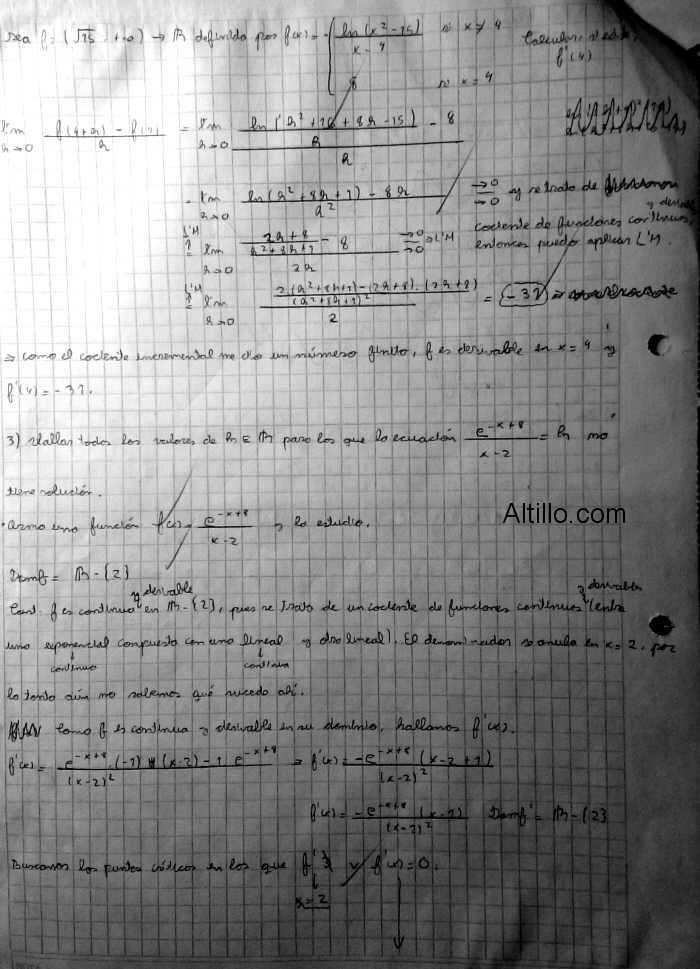 Sea f: (√15, +∞) → ℝ definida por f(x) = { ln(x² - 15) / (x - 4) si x ≠ 4
8 si x = 4
Calcular, si existe, f'(4)
lím h→0 (f(4+h) - f(4)) / h = lím h→0 (ln(h² + 16 + 8h - 15) / h - 8) / h
= lím h→0 (ln(h² + 8h + 1) - 8h) / h² →0/→0 y se trata de
cociente de funciones continuas y derivables,
entonces puedo aplicar L'H.
L'H = lím h→0 ((2h + 8) / (h² + 8h + 1) - 8) / 2h →0/→0 L'H
L'H = lím h→0 ((2·(h² + 8h + 1) - (2h + 8)·(2h + 8)) / (h² + 8h + 1)²) / 2 = -31
⇒ Como el cociente incremental me dio un número finito, f es derivable en x = 4 y
f'(4) = -31.
3) Hallar todos los valores de k ∈ ℝ para los que la ecuación e^(-x+8) / (x - 2) = k no
tiene solución.
• Armo una función f(x) = e^(-x+8) / (x - 2) y lo estudio.
Domf = ℝ - {2}
Cont. f es continua y derivable en ℝ - {2}, pues se trata de un cociente de funciones continuas y derivables (entre
una exponencial compuesta con una lineal y otra lineal). El denominador se anula en x = 2, por
continua continua
lo tanto aún no sabemos qué sucede ahí.
Como f es continua y derivable en su dominio, hallamos f'(x).
f'(x) = (e^(-x+8)·(-1)(x - 2) - 1 e^(-x+8)) / (x - 2)² ⇒ f'(x) = -e^(-x+8) (x - 2 + 1) / (x - 2)²
f'(x) = -e^(-x+8) (x - 1) / (x - 2)² Domf' = ℝ - {2}
Buscamos los puntos críticos en los que f' ∄ ∨ f'(x) = 0.
x = 2
Altillo.com